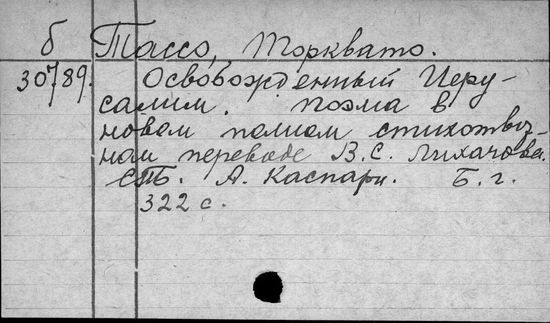 б Тассо, Торквато.
30789. Освобожденный Иеру-
салим. Поэма в
новом полном стихотвор-
ном переводе В.С. Лихачова.
СПб. А. Каспари. Б. г.
322 с.